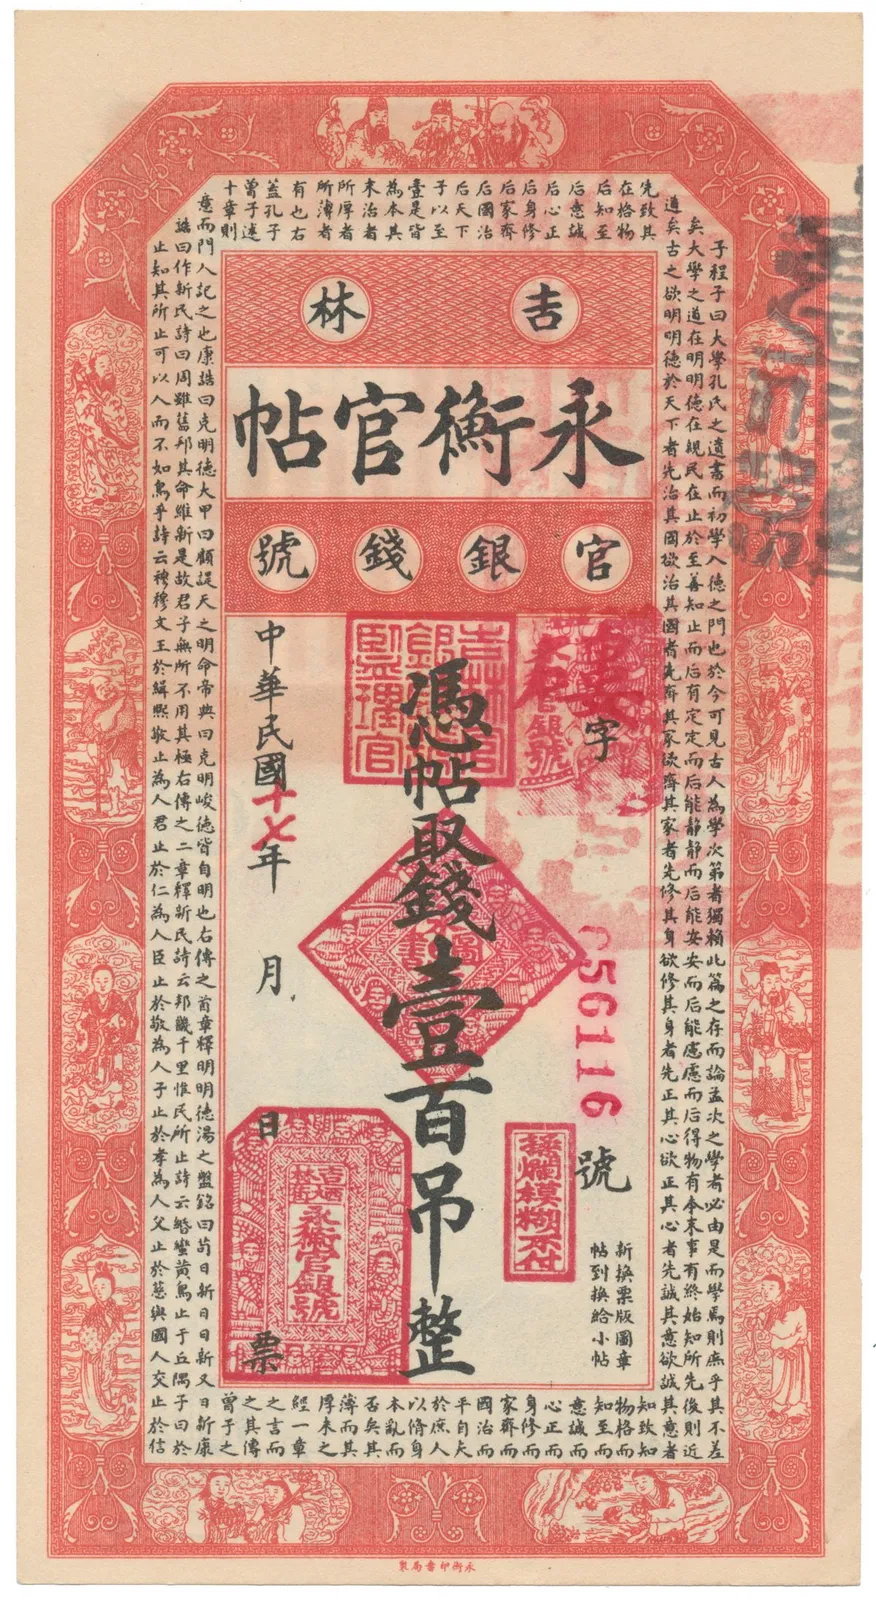 吉林
永衡官帖
官銀錢號
字
056116
號
新換票版圖章
帖到換給小帖
憑帖取錢壹百吊整
中華民國十七年 月 日 票
吉林官銀錢號監理官
搓爛模糊不付
永衡官銀號
子程子曰大學孔氏之遺書而初學入德之門也於今可見古人為學次第者獨賴此篇之存而論孟次之學者必由是而學焉則庶乎其不差
矣大學之道在明明德在親民在止於至善知止而后有定定而后能靜靜而后能安安而后能慮慮而后得物有本末事有終始知所先後則近
道矣古之欲明明德於天下者先治其國欲治其國者先齊其家欲齊其家者先修其身欲修其身者先正其心欲正其心者先誠其意欲誠其意者
先致其
知致知
在格物
物格而
后知至
知至而
后意誠
意誠而
后心正
心正而
后身修
身修而
后家齊
家齊而
后國治
國治而
后天下
平自天
子以至
於庶人
壹是皆
以脩身
為本其
本亂而
末治者
否矣其
所厚者
薄而其
所薄者
厚未之
有也右
經一章
蓋孔子
之言而
曾子述
之其傳
十章則
曾子之
意而門人記之也康誥曰克明德大甲曰顧諟天之明命帝典曰克明峻德皆自明也右傳之首章釋明明德湯之盤銘曰苟日新日日新又日新康
誥曰作新民詩曰周雖舊邦其命維新是故君子無所不用其極右傳之二章釋新民詩云邦畿千里惟民所止詩云緡蠻黃鳥止于丘隅子曰於
止知其所止可以人而不如鳥乎詩云穆穆文王於緝熙敬止為人君止於仁為人臣止於敬為人子止於孝為人父止於慈與國人交止於信
永衡印書局製